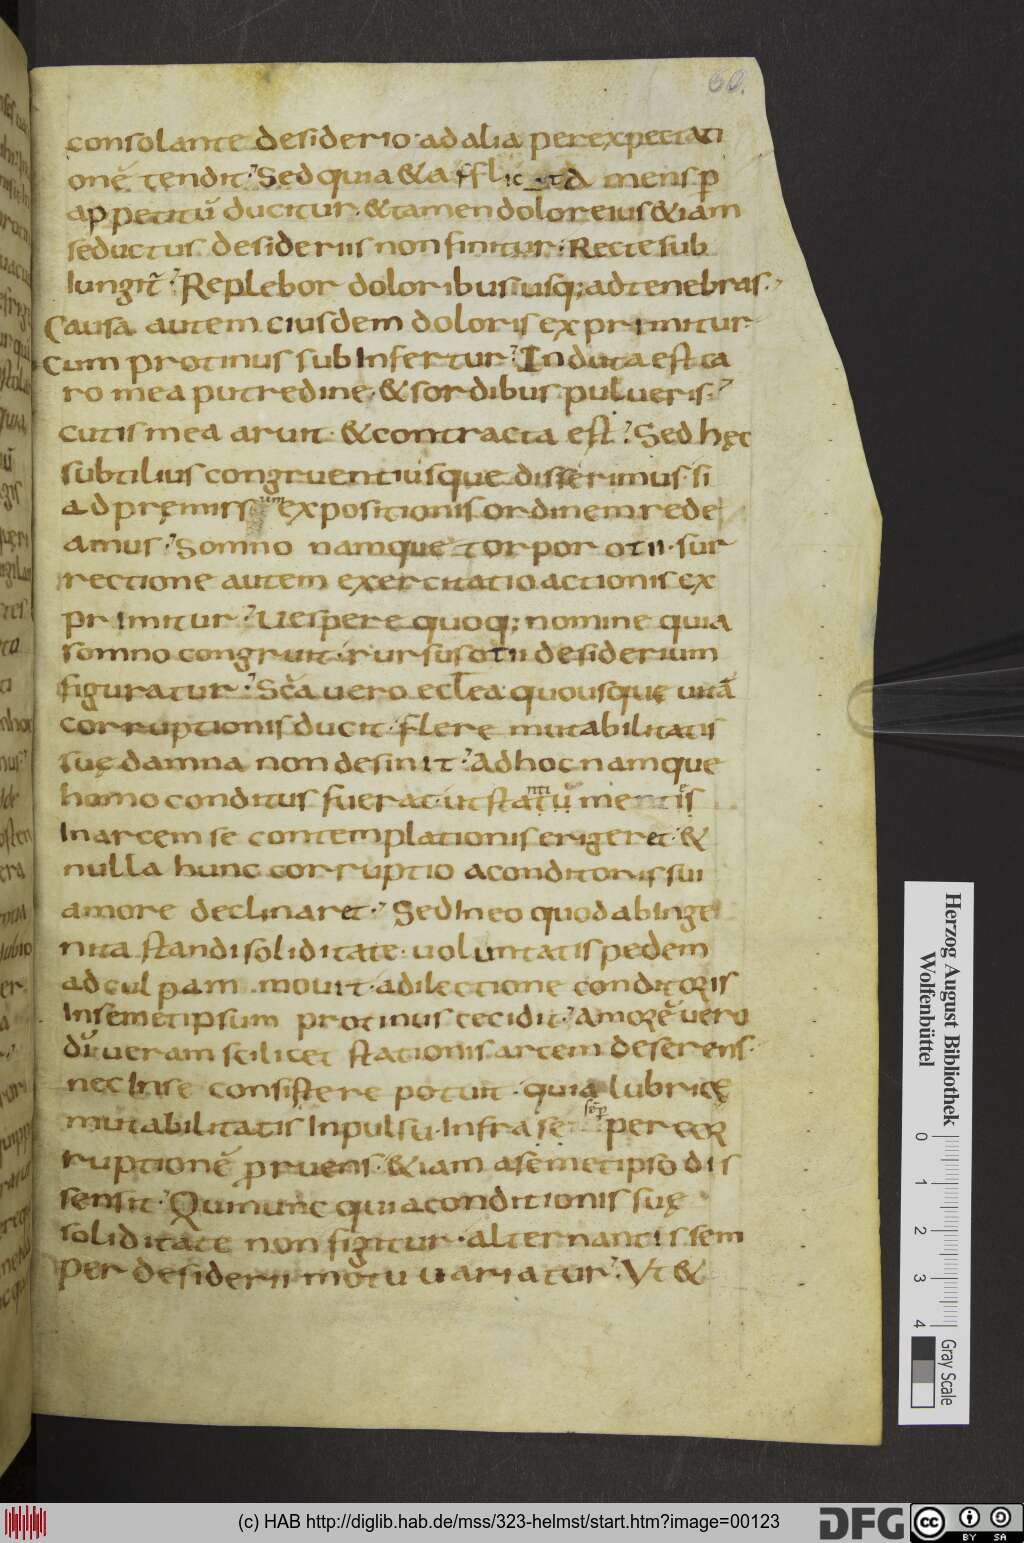 60.
consolante desiderio· ad alia per expectati
onē tendit· Sed quia & mens p̄
appetitū ducitur· & tamen dolor eius &iam
seductus desideriis non finitur· Recte sub
iungit̄· Replebor doloribus usq; ad tenebras·
Causa autem eiusdem doloris exprimitur
cum protinus subinfertur· Induta est ca
ro mea putredine· & sordibus pulueris·
cutis mea aruit· & contracta est· Sed hęc
subtilius congruentiusque disserimus· si
ad pręmiss expositionis ordinem rede
amus· Somno namque torpor otii· sur
rectione autem exercitatio actionis ex
primitur· Uespere quoq; nomine quia
somno congruit· rursus otii desiderium
figuratur· Sc̄a uero ecl̄ea quousque uitā
corruptionis ducit· flere mutabilitatis
suę damna non desinit· Ad hoc namque
homo conditus fuerat· ut
In arcem se contemplationis erigeret· &
nulla hunc corruptio a conditoris sui
amore declinaret· Sed In eo quod ab Inge
nita standi soliditate· uoluntatis pedem
ad culpam mouit· a dilectione conditoris
In semetipsum protinus cecidit· Amorē uero
dī ueram scilicet stationis arcem deserens·
nec In se consistere potuit· quia lubricę
mutabilitatis Inpulsu· Infra se per cor
ruptionē pruens· &iam a semetipso dis
sensit· Qui nunc quia conditionis suę
soliditate non figitur· alternantis sem
per desiderii motu uariatur· Ut &
Herzog August Bibliothek
Wolfenbüttel
0 1 2 3 4
Gray Scale
(c) HAB http://diglib.hab.de/mss/323-helmst/start.htm?image=00123
DFG
cc BY SA